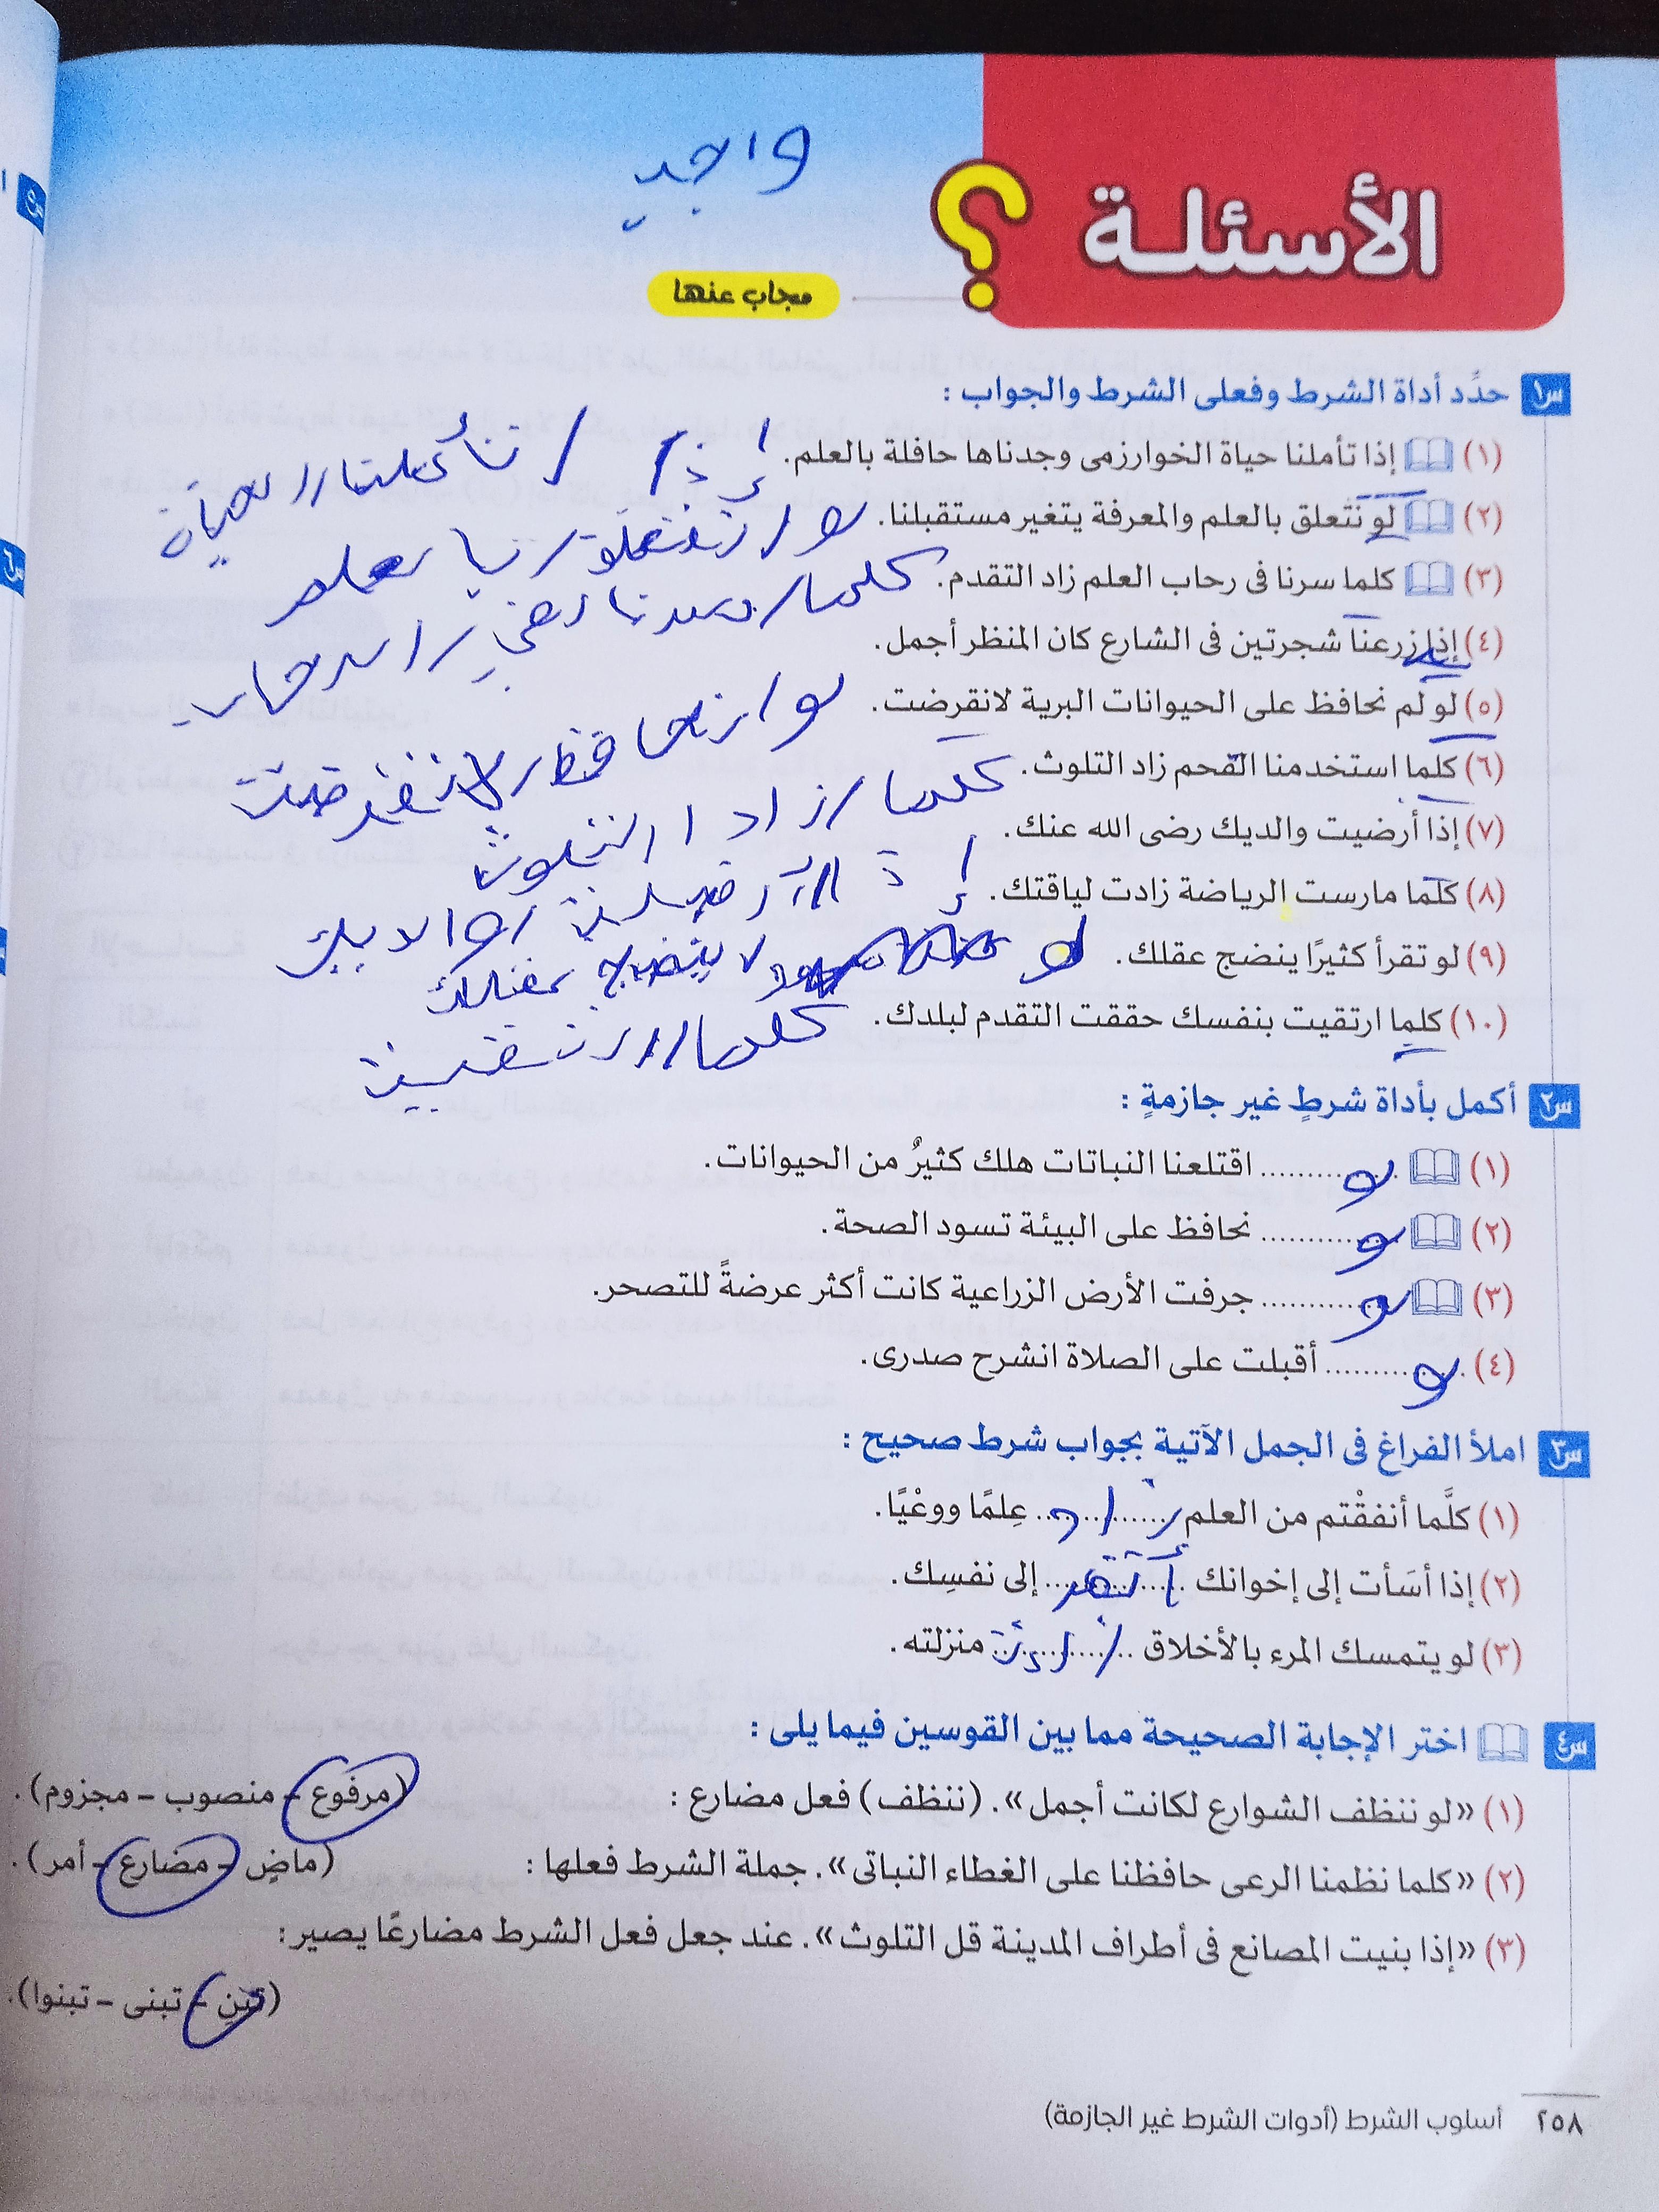 واجب
الأسئلة ؟
مجاب عنها
س١ حدِّد أداة الشرط وفعلى الشرط والجواب :
(١) إذا تأملنا حياة الخوارزمى وجدناها حافلة بالعلم.
إذا / تأملنا / الحياة
(٢) لو نتعلق بالعلم والمعرفة يتغير مستقبلنا.
(٣) كلما سرنا فى رحاب العلم زاد التقدم.
كلما / سرنا / في /
(٤) إذا زرعنا شجرتين فى الشارع كان المنظر أجمل.
(٥) لو لم نحافظ على الحيوانات البرية لانقرضت.
لو / نحافظ / لانقرضت
(٦) كلما استخدمنا الفحم زاد التلوث.
كلما / زاد التلوث
(٧) إذا أرضيت والديك رضى الله عنك.
(٨) كلما مارست الرياضة زادت لياقتك.
(٩) لو تقرأ كثيرًا ينضج عقلك.
لو ينضج عقلك
(١٠) كلما ارتقيت بنفسك حققت التقدم لبلدك.
كلما / ارتقيت
س٢ أكمل بأداة شرطٍ غير جازمةٍ :
(١) لو .......... اقتلعنا النباتات هلك كثيرٌ من الحيوانات.
(٢) لو .......... نحافظ على البيئة تسود الصحة.
(٣) لو .......... جرفت الأرض الزراعية كانت أكثر عرضةً للتصحر.
(٤) لو .......... أقبلت على الصلاة انشرح صدرى.
س٣ املأ الفراغ فى الجمل الآتية بجواب شرط صحيح :
(١) كلَّما أنفقْتم من العلم .......... عِلمًا ووعْيًا.
(٢) إذا أسَأت إلى إخوانك .......... إلى نفسِك.
(٣) لو يتمسك المرء بالأخلاق .......... منزلته.
س٤ اختر الإجابة الصحيحة مما بين القوسين فيما يلى :
(١) «لو ننظف الشوارع لكانت أجمل». (ننظف) فعل مضارع : (مرفوع – منصوب – مجزوم).
(٢) «كلما نظمنا الرعى حافظنا على الغطاء النباتى». جملة الشرط فعلها : (ماضٍ – مضارع – أمر).
(٣) «إذا بنيت المصانع فى أطراف المدينة قل التلوث». عند جعل فعل الشرط مضارعًا يصير :
(تبنِ – تبنى – تبنوا).
٢٥٨ أسلوب الشرط (أدوات الشرط غير الجازمة)